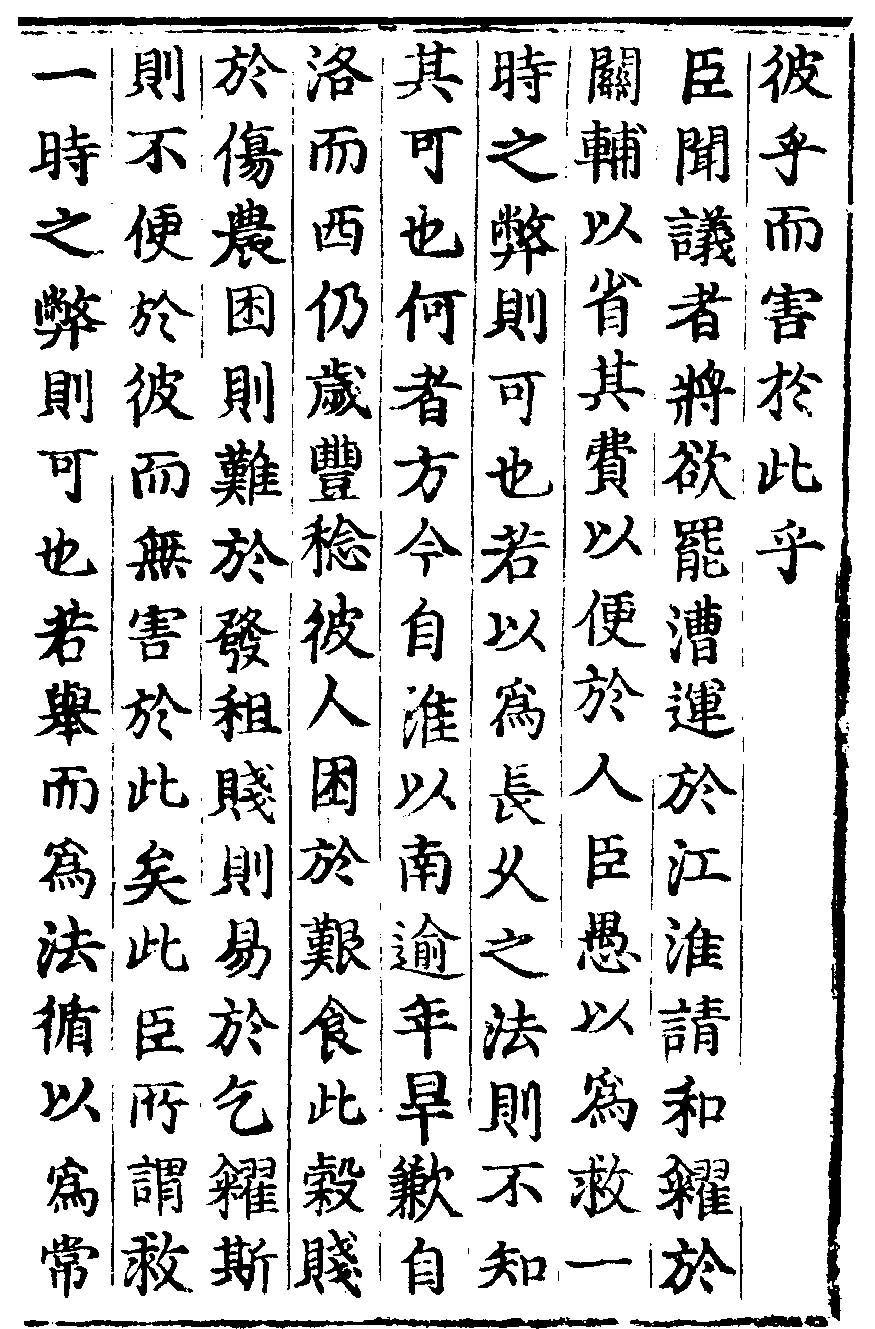 彼乎而害於此乎
臣聞議者將欲罷漕運於江淮請和糴於
關輔以省其費以便於人臣愚以為救一
時之弊則可也若以為長久之法則不知
其可也何者方今自淮以南逾年旱歉自
洛而西仍歲豐稔彼人困於艱食此穀賤
於傷農困則難於發租賤則易於乞糴斯
則不便於彼而無害於此矣此臣所謂救
一時之弊則可也若舉而為法循以為常